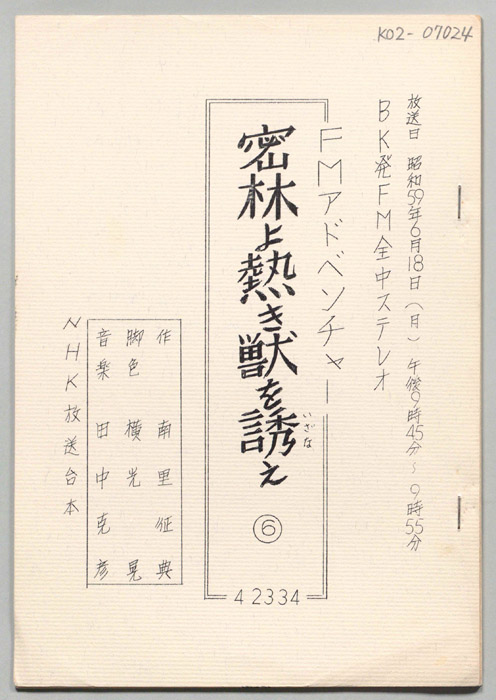 K02-07024
放送日 昭和59年6月18日(月) 午後9時45分～9時55分
BK発FM全中ステレオ
FMアドベンチャー
密林よ熱き獣を誘え
いざな
⑥
42334
作 南里征典
脚色 横光晃
音楽 田中克彦
NHK放送台本